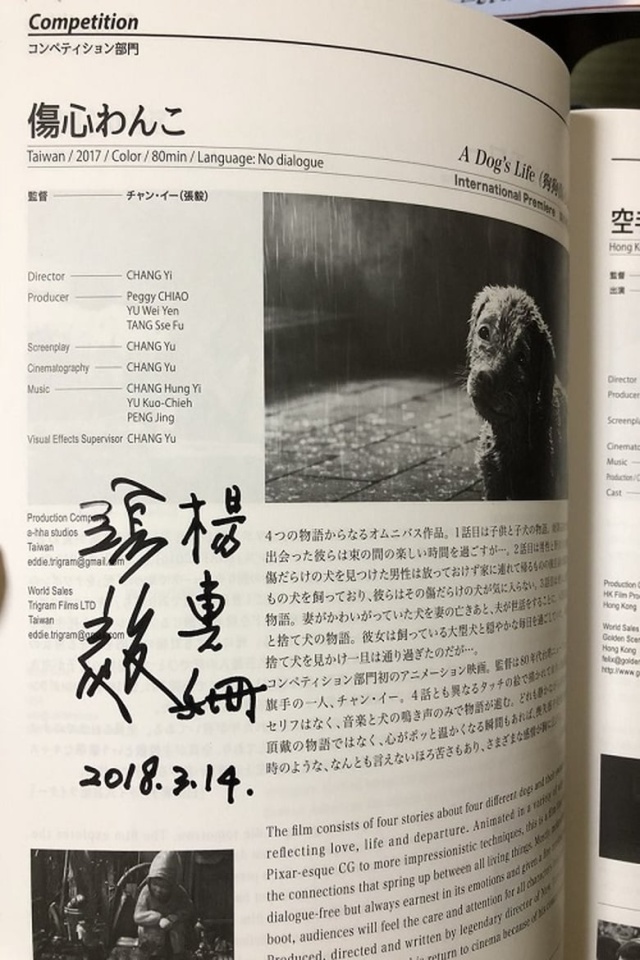 Competition
コンペティション部門
傷心わんこ
Taiwan / 2017 / Color / 80min / Language: No dialogue
A Dog's Life (狗狗
International Premiere
監督 チャン・イー(張毅)
Director CHANG Yi
Producer Peggy CHIAO
YU Wei Yen
TANG Sse Fu
Screenplay CHANG Yu
Cinematography CHANG Yu
Music CHANG Hung Yi
YU Kuo-Chieh
PENG Jing
Visual Effects Supervisor CHANG Yu
Production Comp
a-hha studios
Taiwan
eddie.trigram@gmail.com
World Sales
Trigram Films LTD
Taiwan
eddie.trigram@g
com
張毅
楊惠姍
2018.3.14.
4つの物語からなるオムニバス作品。1話目は子供と子犬の物語。
出会った彼らは束の間の楽しい時間を過ごすが…。2話目は男性と
傷だらけの犬を見つけた男性は放っておけず家に連れて帰るものの
もの犬を飼っており、彼らはその傷だらけの犬が気に入らない。3話目は
物語。妻がかわいがっていた犬を妻の亡きあと、夫が世話をすることに。
と捨て犬の物語。彼女は飼っている大型犬と穏やかな毎日を過ごして
捨て犬を見かけ一旦は通り過ぎたのだが…。
コンペティション部門初のアニメーション映画。監督は80年代
旗手の一人、チャン・イー。4話とも異なるタッチの絵で描かれて
セリフはなく、音楽と犬の鳴き声のみで物語が進む。どれも
頂戴の物語ではなく、心がポッと温かくなる瞬間もあれば、
時のような、なんとも言えないほろ苦さもあり、さまざまな感情が胸に
The film consists of four stories about four different dogs and their
reflecting love, life and departure. Animated in a variety of
Pixar-esque CG to more impressionistic techniques, this is a film
the connections that spring up between all living things. Mostly
dialogue-free but always earnest in its emotions and given a fine
boot, audiences will feel the care and attention for all characters
Produced, directed and written by legendary director of New
return to cinema because of his
空手
Hong K
監督
出演
Director
Producer
Screenpla
Cinemato
Music
Production/C
Cast
Production C
HK Film Pro
Hong Kong
World Sales
Golden Sce
Hong Kong
felix@golde
http://www.g